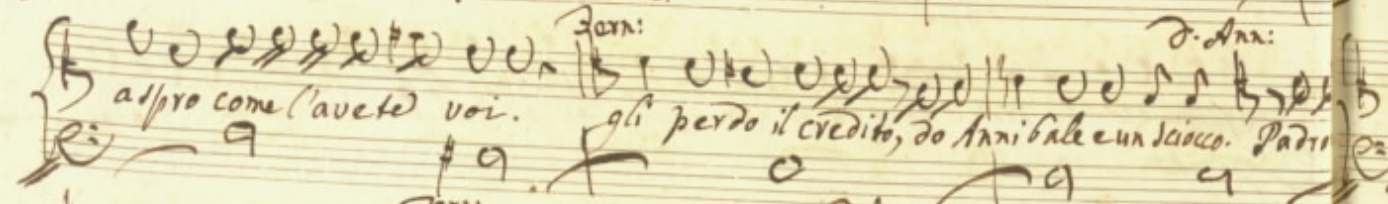 Zern: D. Ann:
aspro come l'avete voi. gli perdo il credito, do Annibale e un sciocco. Padro